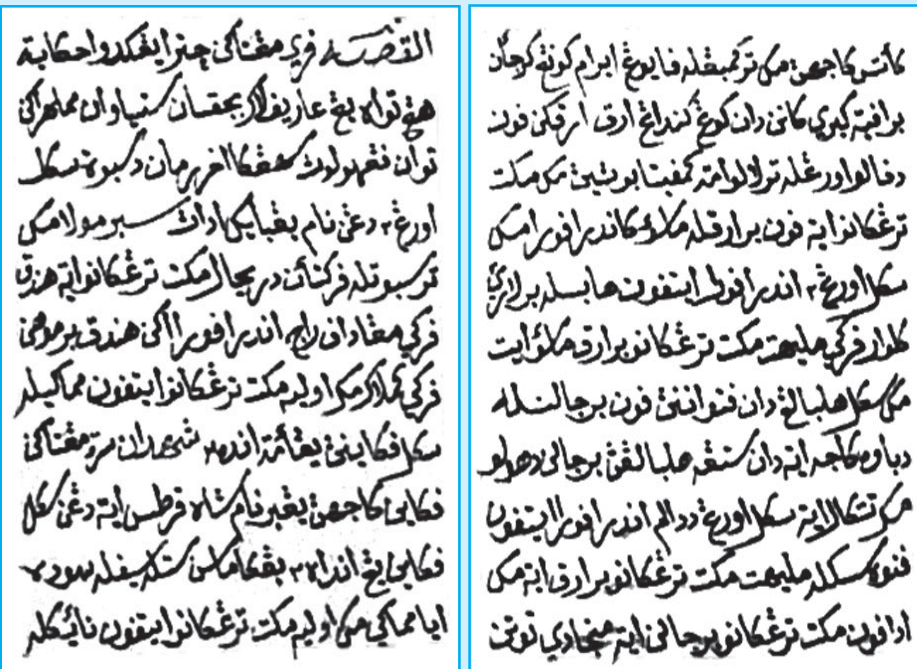 القصه فري مڠتاكن چترا يڠكدوا حكاية
هڠ تواه يڠ عاريف لاڬ بجقسان ستياوان مملهراكن
توان دسبوة سكل
اورڠ٢ دڠن نام يڠبايك سبرمولا مك
ترسبوتله فركتأن دري حال مكت ترڠكانوا ايه هندق
فركي مڠادف راج اندرا فورا اكن هندق برموهن
فركي كملاك مك اوليه مكت ترڠكانوا ايتفون مماكيله
سكل فكاينن يڠامة انده٢ شهدان سرة مڠناكن
فكاين كاجهڽ يڠبرنام شاه قرطس ايه دڠن سكل
فكاين يڠ انده٢ يڠكأماسن ستله سيفله سوده
ايا مماكي مك اوليه مكت ترڠكانوا ايتفون نائكله
كأتس كاجهڽ مك تركمبڠله فايوڠ ايرام كونڠ كرجأن
برافيت كيري كانن دان كوڠ كندڠ ارق ارقكن فون
دفالو اورڠله ترلالو امة كمفيتا بوڽين مك مكت
ترڠكانوا ايه فون برارقله اندرا فورا مك
سكل اورڠ٢ اندرا فورا ايتفون هابسله برلاري
كلوار فركي مليهت مكت ترڠكانو برارق ايت
مك سكل هلبالڠ دان فون برجالنله
دباوه كاجه ايه دان ستڠه هلبالڠڽ برجالن دهولو
مك تتكالا ايه سكل اورڠ ددالم اندرا فورا ايتفون
فنوه سسكله مليهت مكت ترڠكانو برارق ايه مك
ادافون مكت ترڠكانو برجالن ايه منجادي